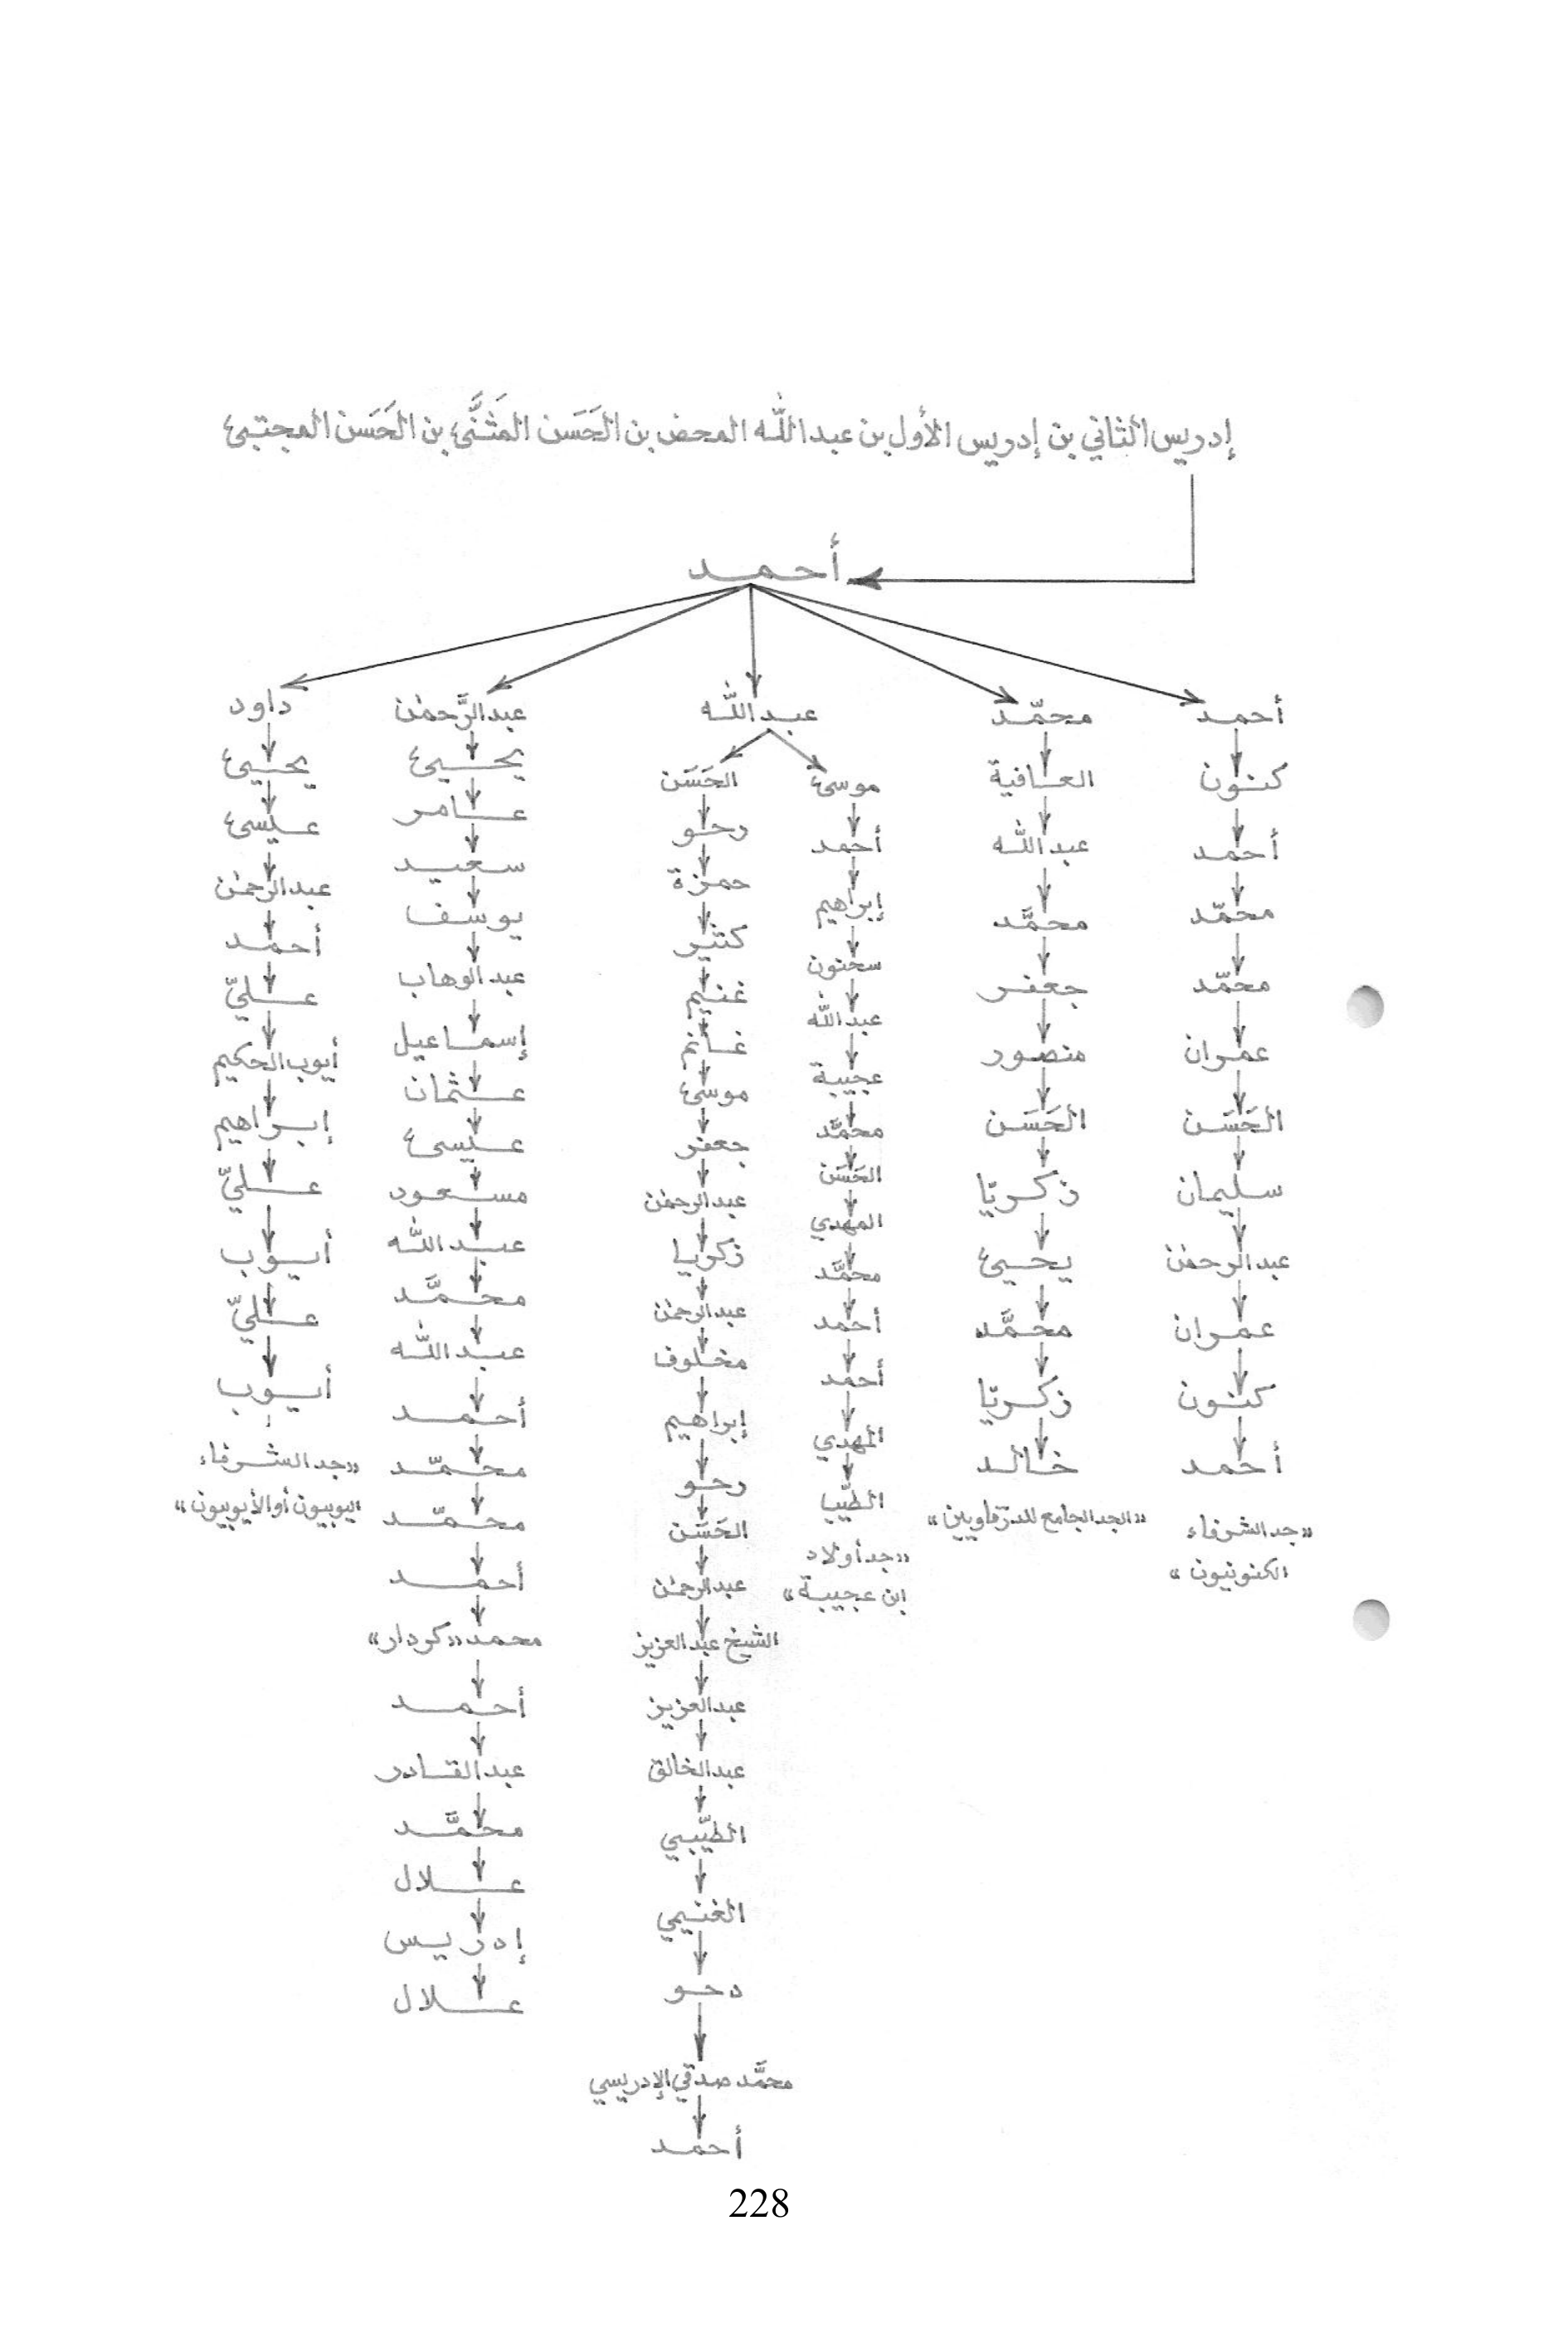 إدريس الثاني بن إدريس الأول بن عبد اللّٰه المحض بن الحَسَن المَثَنَّىٰ بن الحَسَن المجتبىٰ
أحمد
أحمد
كنون
أحمد
محمّد
محمّد
عمران
الحَسَن
سليمان
عبد الرحمٰن
عمران
كنون
أحمد
«جد الشرفاء
الكنونيون»
محمّد
العافية
عبد اللّٰه
محمَّد
جعفر
منصور
الحَسَن
زكريّا
يحيىٰ
محمَّد
زكريّا
خالد
«الجد الجامع للدرقاويين»
عبد اللّٰه
موسىٰ
أحمد
إبراهيم
سحنون
عبد اللّٰه
عجيبة
محمَّد
الحَسَن
المهدي
محمَّد
أحمد
أحمد
المهدي
الطيّب
«جد أولاد
ابن عجيبة»
الحَسَن
رحو
حمزة
كثير
غنيم
غانم
موسىٰ
جعفر
عبد الرحمٰن
زكريا
عبد الرحمٰن
مخلوف
إبراهيم
رحو
الحَسَن
عبد الرحمٰن
الشيخ عبد العزيز
عبد العزيز
عبد الخالق
الطيّبي
الغنيمي
دحو
محمَّد صدقي الإدريسي
أحمد
عبد الرَّحمٰن
يحيىٰ
عامر
سعيد
يوسف
عبد الوهاب
إسماعيل
عثمان
عيسىٰ
مسعود
عبد اللّٰه
محمَّد
عبد اللّٰه
أحمد
محمّد
محمّد
أحمد
محمد «كردار»
أحمد
عبد القادر
محمَّد
علال
إدريس
علال
داود
يحيىٰ
عيسىٰ
عبد الرحمٰن
أحمد
عليّ
أيوب الحكيم
إبراهيم
عليّ
أيوب
عليّ
أيوب
«جد الشرفاء
اليوبيون أو الأيوبيون»
228